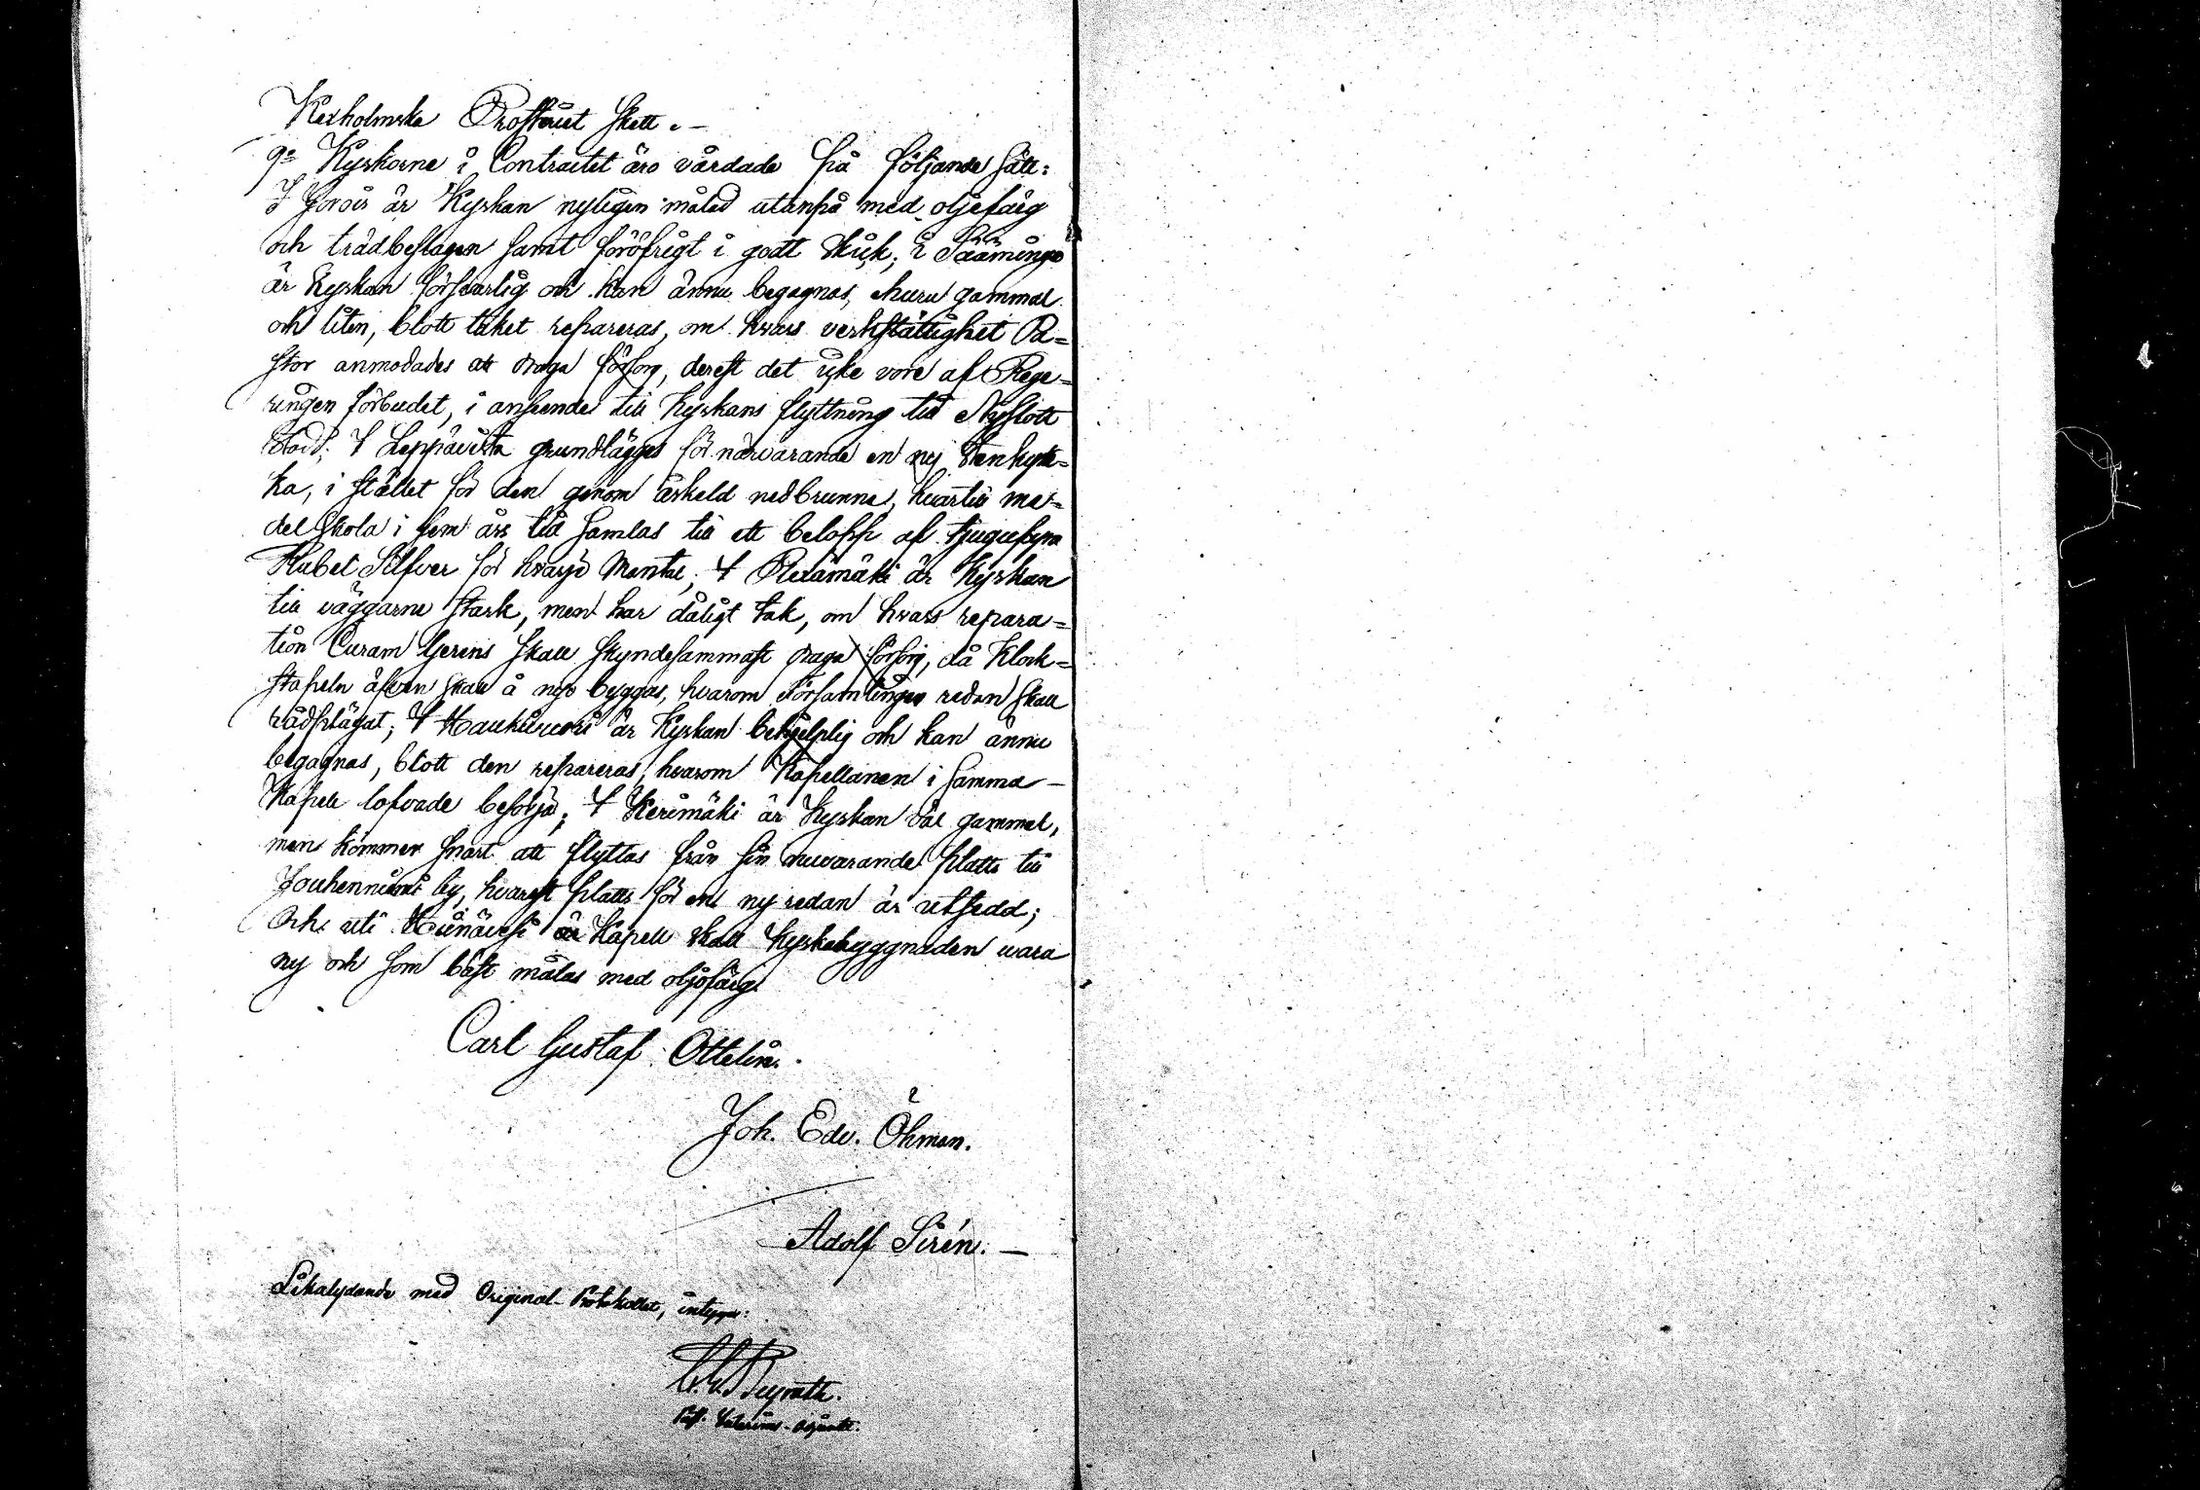 Kexholmska Prosteriet skett. –
9o Kyrkorne i Contractet äro vårdade på följande sätt:
I Jorois är Kyrkan nyligen målad utanpå med oljefärg
och brädbeslagen samt föröfrigt i godt skick; i Sääminge
är Kyrkan försvarlig och kan ännu begagnas, ehuru gammal
och liten, blott taket repareras, om hvars verkställighet Pa=
stor anmodades att draga försorg, derest det icke vore af Rege=
ringen förbudet, i anseende till Kyrkans flyttning till Nyslott
Stad; I Leppävirta grundlägges för närvarande en ny Stenkyr=
ka, i stället för den genom åskeld nedbrunna, hvartill me=
del skola i fem års tid samlas till ett belopp af tjugufyra
Rubel Silfver för hvarje Mantal; I Rantamäki är Kyrkan
till väggarne stark, men har dåligt tak, om hvars repara=
tion Curam Gerens skall skyndesammast draga försorg, då Klock=
stapeln äfven skall å nyo byggas, hvarom Församlingen redan skall
rådplägat; I Haukivuori är Kyrkan behjelplig och kan ännu
begagnas, blott den repareras, hvarom Kapellanen i samma
Kapell lofvade besörja; I Kerimäki är Kyrkan väl gammal,
men kommer snart att flyttas från sin nuvarande platts till
Jouhenniemi by, hvarest platts för en ny redan är utsedd;
Och uti Heinävesi Kapell skall kyrkobyggnaden wara
ny och som bäst målas med oljefärg.
Carl Gustaf Ottelin.
Joh. Edv. Öhman.
Adolf Sirén. –
Likalydande med Original-Protokollet, intygar: